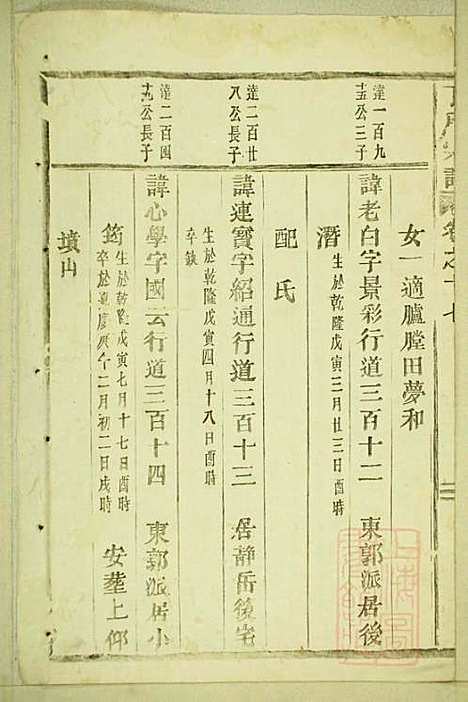 卷之十七
女一適臚膛田夢和
達一百九
十五公三子
諱老白字景彩行道三百十二 東郭派居後
潛 生於乾隆戊寅三月廿三日酉時
配氏
達二百廿
八公長子
諱連寶字紹通行道三百十三 居靜岳後宅
生於乾隆戊寅四月十八日酉時
卒缺
達二百四
十九公長子
諱心學字國云行道三百十四 東郭派居小
筠 生於乾隆戊寅七月十七日酉時
卒於嘉慶庚午二月初二日戌時 安塟上仰
墳山